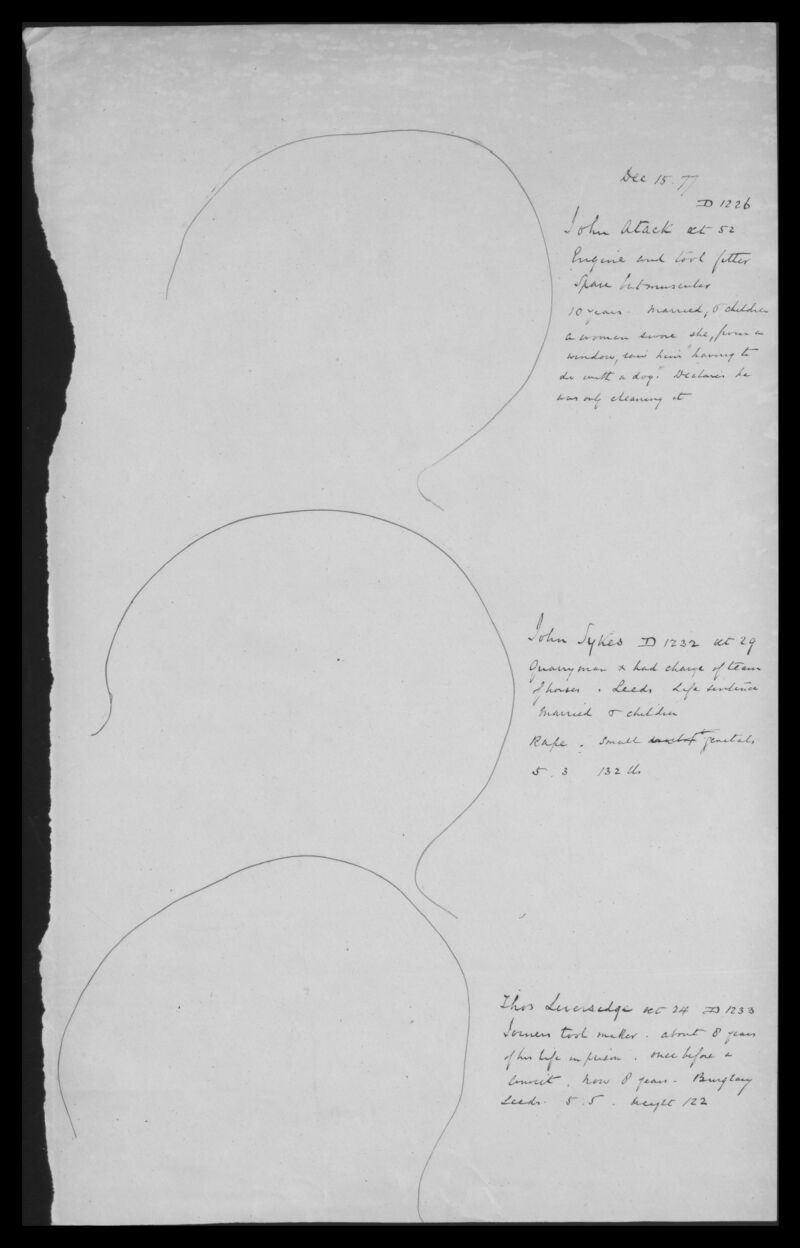 Dec 15. 77
D 1226
John Atack æt 52
Engine and tool fitter
Spare but muscular
10 years. Married, 5 children
a woman swore she, from a
window, saw him "having to
do with a dog." Declares he
was only cleaning it
John Sykes D 1232 æt 29
Quarryman & had charge of team
of horses. Leeds Life sentence
Married 5 children
Rape. Small genitals
5.3 132 lbs
Thos Liversedge æt 24 D 1233
Joiners tool maker. about 8 years
of his life in prison. once before a
convict. Now 8 years. Burglary
Leeds. 5.5. Weight 122